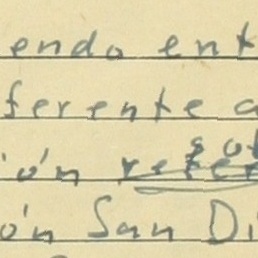 endo ent
ferente a
ión refer
ón San Di